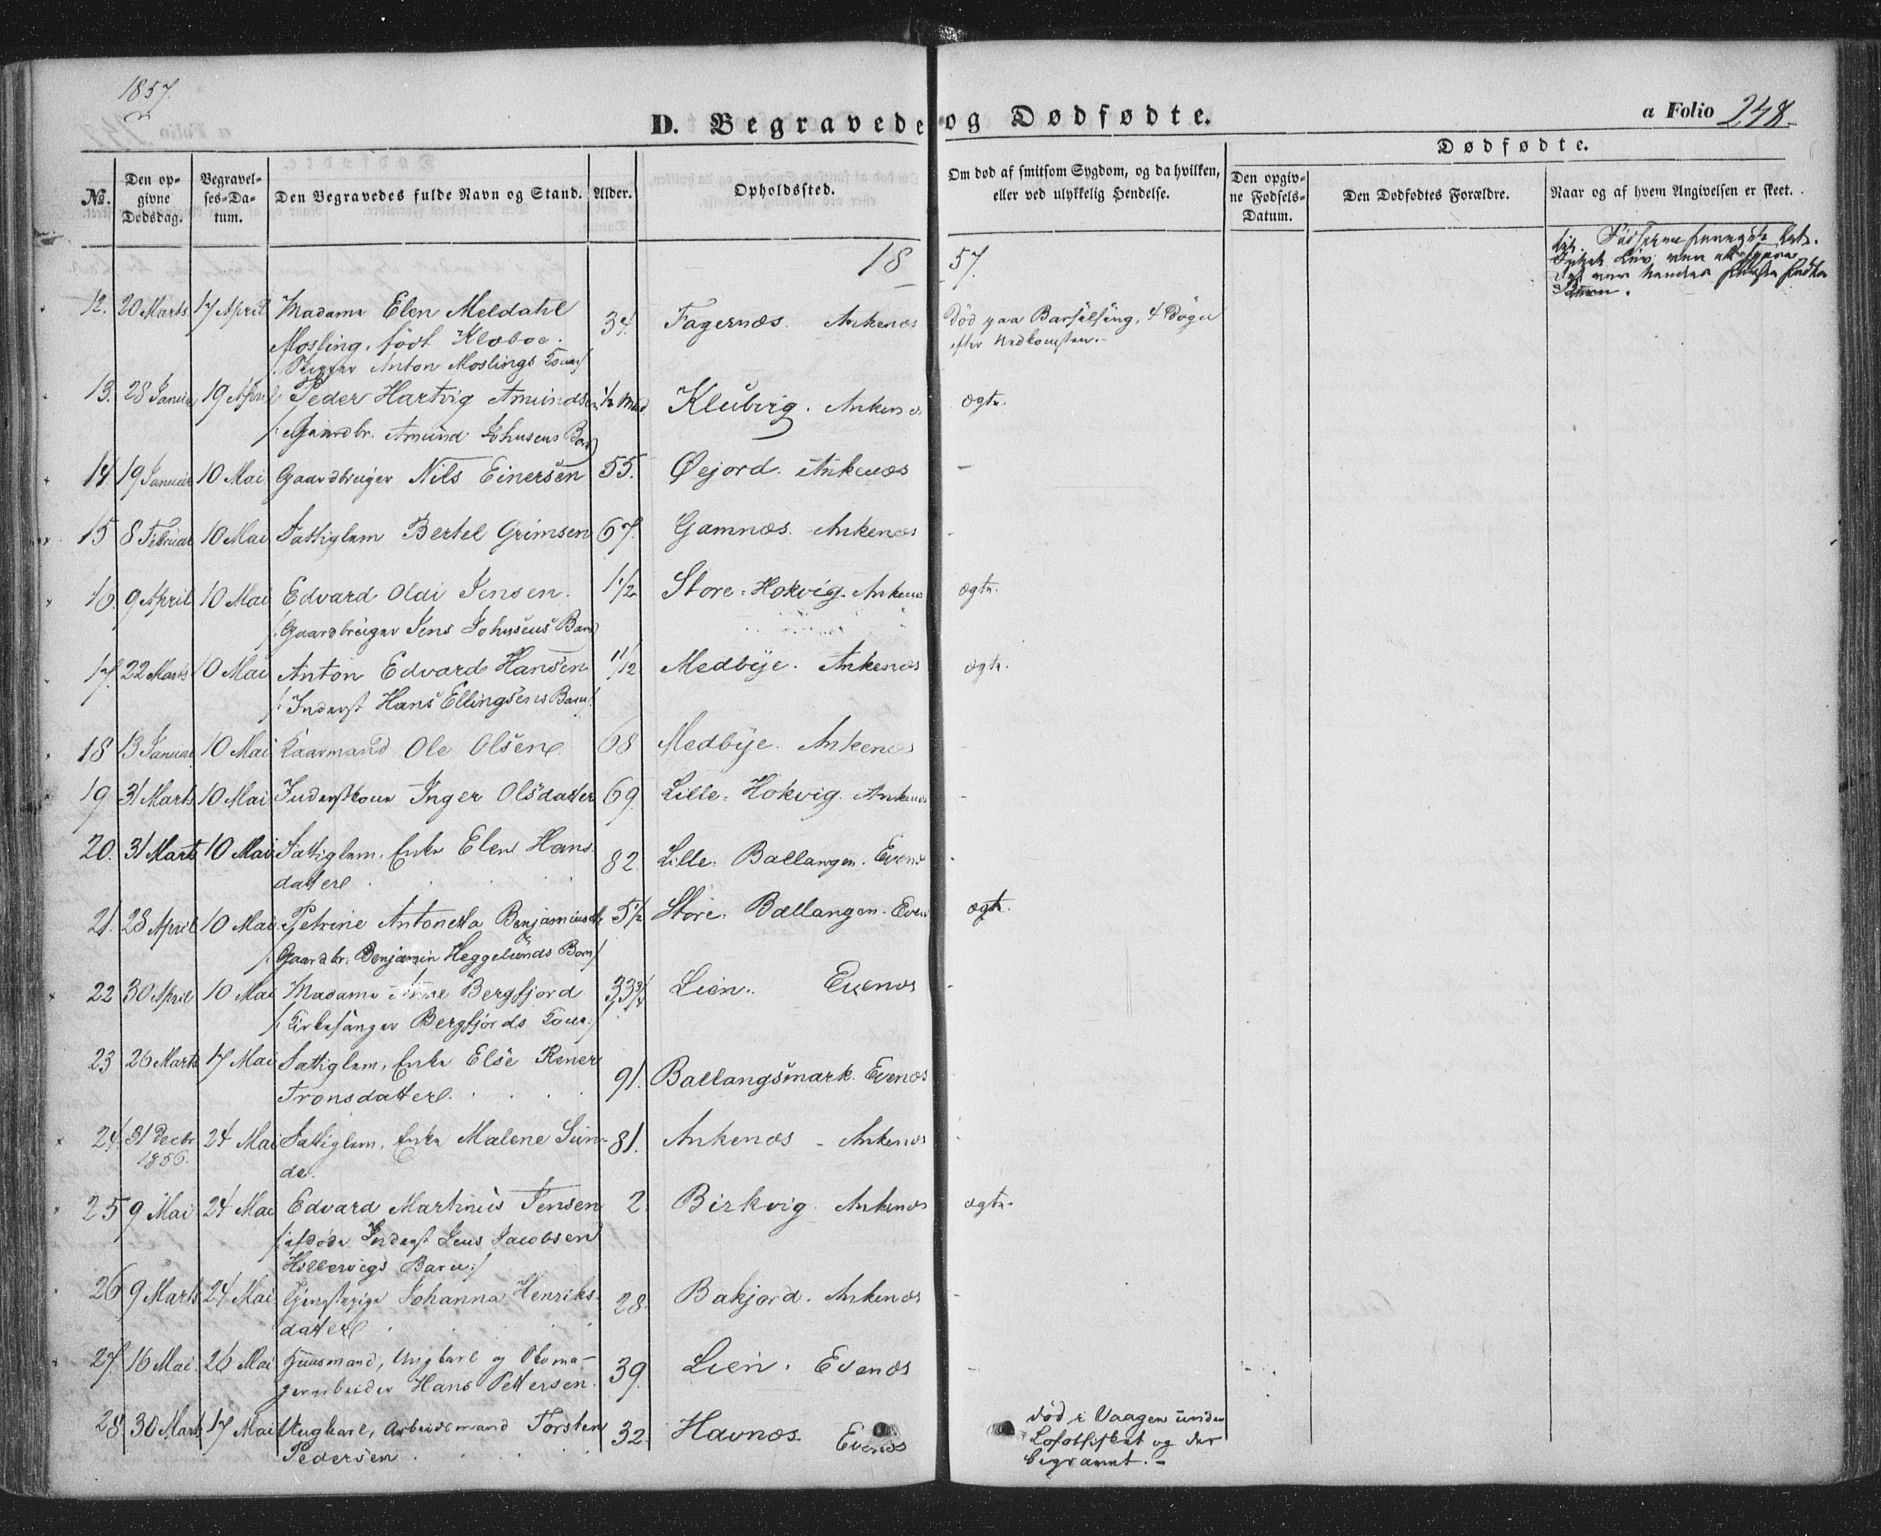 1857.
D. Begravede og Dødfødte.
a Folio 248.
No.
Den opgivne Dødsdag.
Begravelses-Datum.
Den Begravedes fulde Navn og Stand.
Alder.
Opholdssted.
Om død af smitsom Sygdom, og da hvilken, eller ved ulykkelig Hendelse.
Dødfødte.
Den opgivne Fødsels-Datum.
Den Dødfødtes Forældre.
Naar og af hvem Angivelsen er skeet.
1857.
12. 20 Marts 17 April Madame Elen Meldahl 34. Fagernæs. Ankenæs Død paa Barselseng, 4 Døgn
Mosling, født Kloboe. efter Nedkomsten.
Anton Moslings Kone/
13. 28 Januar 19 April Peder Hartvig Amundsen 1/2 Mnd Klubvig. Ankenæs ægte.
/: Gaardbr. Amund Johnsens Barn
14. 19 Januar 10 Mai Gaardbruger Nils Einersen 55. Øejord. Ankenæs –
15 8 Februar 10 Mai Fattiglem Bertel Grimsen 67. Gamnæs. Ankenæs -
16. 9 April 10 Mai Edvard Olai Jensen. 1 1/2 Store-Hokvig. Ankenæs ægte.
/: Gaardbruger Jens Johnsens Barn
17. 22 Marts 10 Mai Anton Edvard Hansen 11/12 Medbye. Ankenæs ægte.
/: Inderst Hans Ellingsens Barn/
18 13 Januar 10 Mai Kaarmand Ole Olsen. 68 Medbye. Ankenæs
19. 31 Marts 10 Mai Inderstkone Inger Olsdatter 69. Lille-Hokvig. Ankenæs -
20. 31 Marts 10 Mai Fattiglem, Enke Elen Hans- 82. Lille-Ballangen. Evenæs -
datter.
21. 28 April 10 Mai Petrine Antonetta Benjaminsdtr 5 1/2 Store-Ballangen. Evenæs ægte.
/: Gaardbr. Benjamin Heggelunds Barn/
22 30 April 10 Mai Madame Anne Bergfjord 33 3/4 Lien. Evenæs -
/: Kirkesanger Bergfjords Kone:/
23 26 Marts 17 Mai Fattiglem, Enke Else Rener 91. Ballangsmark. Evenæs
Tronsdatter.
24. 31 Decbr 1856. 24 Mai Fattiglem, Enke Malene Sun- 81. Ankenæs - Ankenæs -
de.
25 9 Mai 24 Mai Edvard Martinus Jensen 2. Birkvig. Ankenæs ægte.
/: afdøde Inderst Jens Jacobsen
Hillervigs Barn:/
26 9 Marts 24 Mai Tjenstepige Johanna Henriks- 28. Bakjord. Ankenæs -
datter
27. 16 Mai 26 Mai Huusmand, Ungkarl og 39. Lien. Evenæs -
Hans Pettersen.
28. 30 Marts 17 Mai Ungkarl, Arbeidsmand Torsten 32. Havnæs. Evenæs Død i Vaagen under
Pedersen. Lofotfisket og der
begravet. -